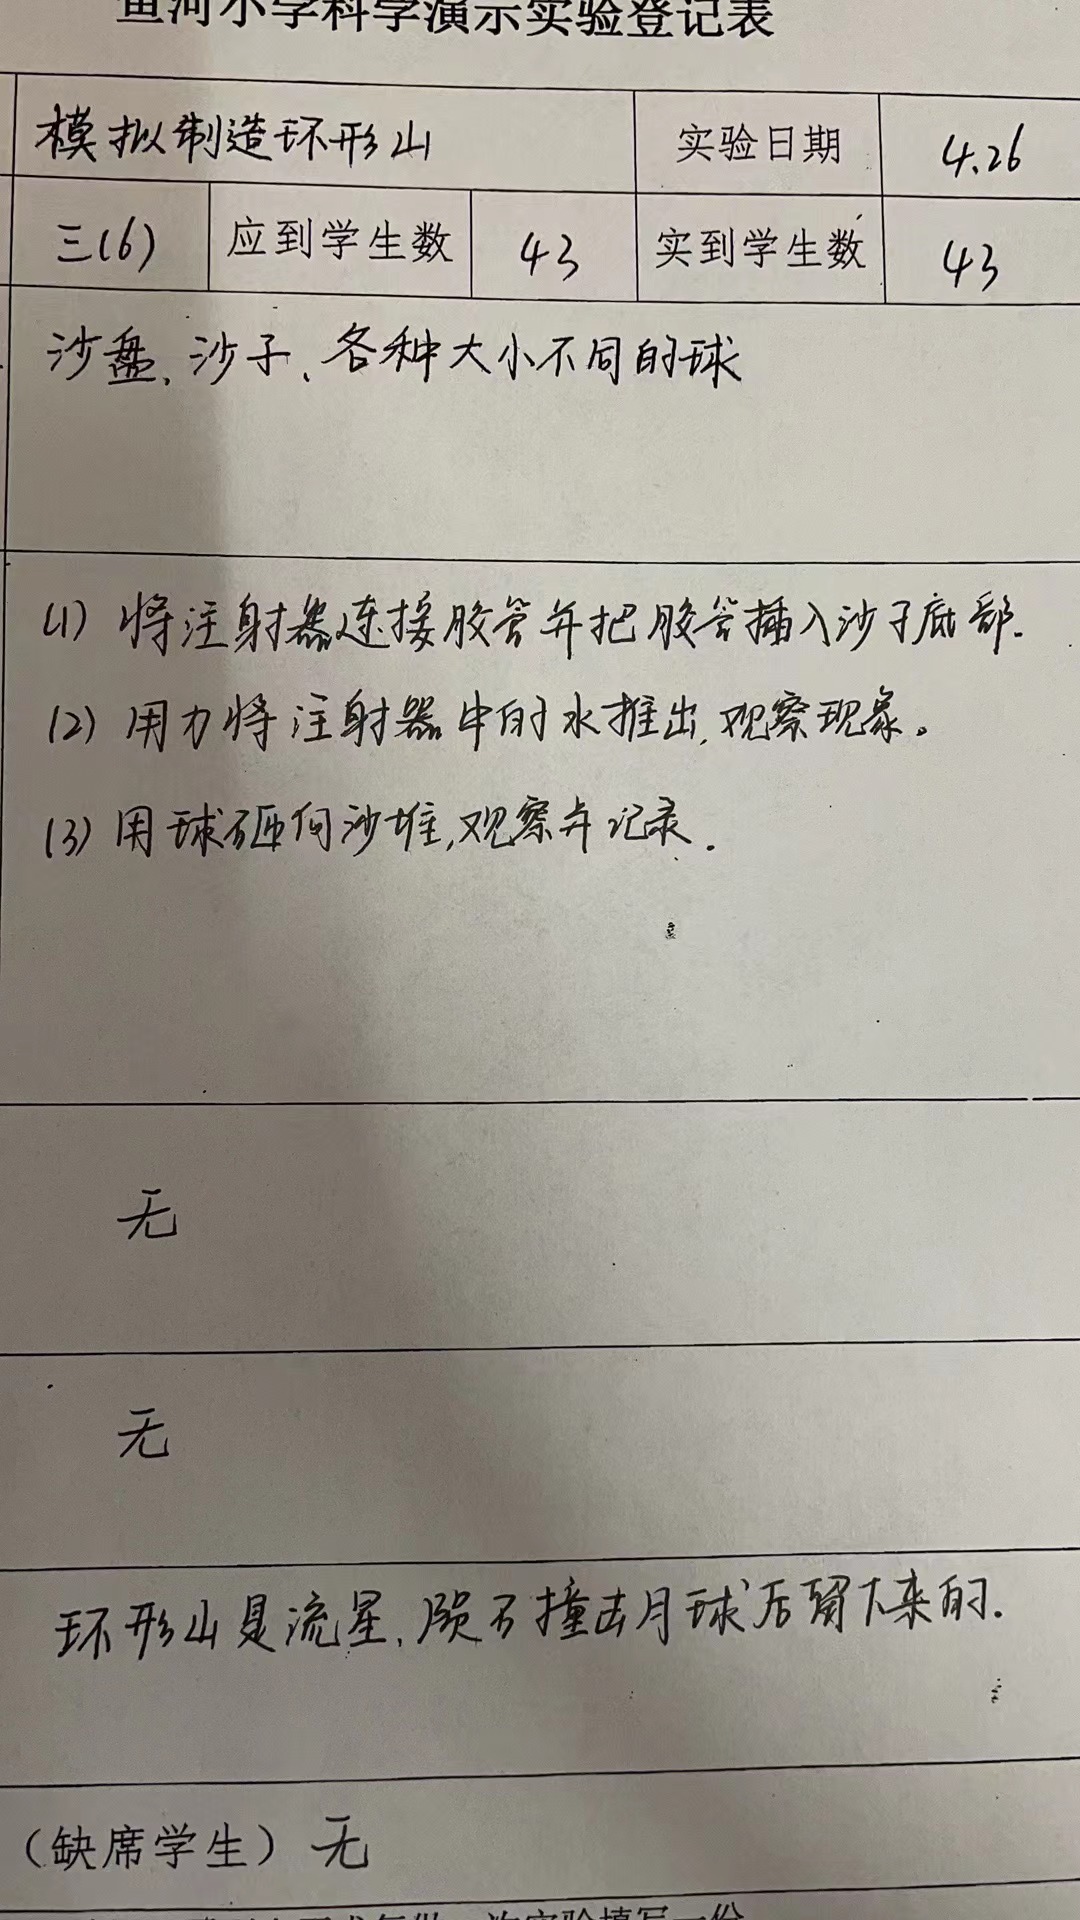 鱼河小学科学演示实验登记表
模拟制造环形山 实验日期 4.26
三(6) 应到学生数 43 实到学生数 43
沙盘、沙子、各种大小不同的球
(1) 将注射器连接胶管并把胶管插入沙子底部.
(2) 用力将注射器中的水推出,观察现象。
(3) 用球砸向沙堆,观察并记录.
无
无
环形山是流星、陨石撞击月球后留下来的.
(缺席学生) 无
实验填写一份